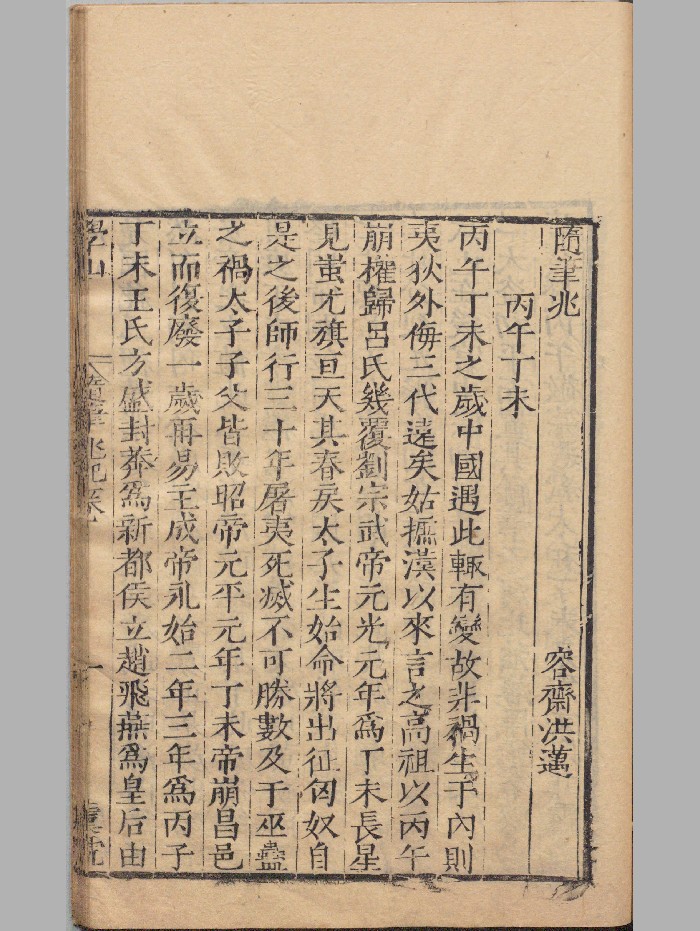 隨筆兆 容齋洪邁
丙午丁未
丙午丁未之歲中國遇此輒有變故非禍生于內則
夷狄外侮三代遠矣姑摭漢以來言之高祖以丙午
崩權歸呂氏幾覆劉宗武帝元光元年爲丁未長星
見蚩尤旗亘天其春戾太子生始命將出征匈奴自
是之後師行三十年屠夷死滅不可勝數及于巫蠱
之禍太子子父皆敗昭帝元平元年丁未帝崩昌邑
立而復廢一歲再易王成帝永始二年三年爲丙子
丁未王氏方盛封莽爲新都侯立趙飛燕爲皇后由
學山 一